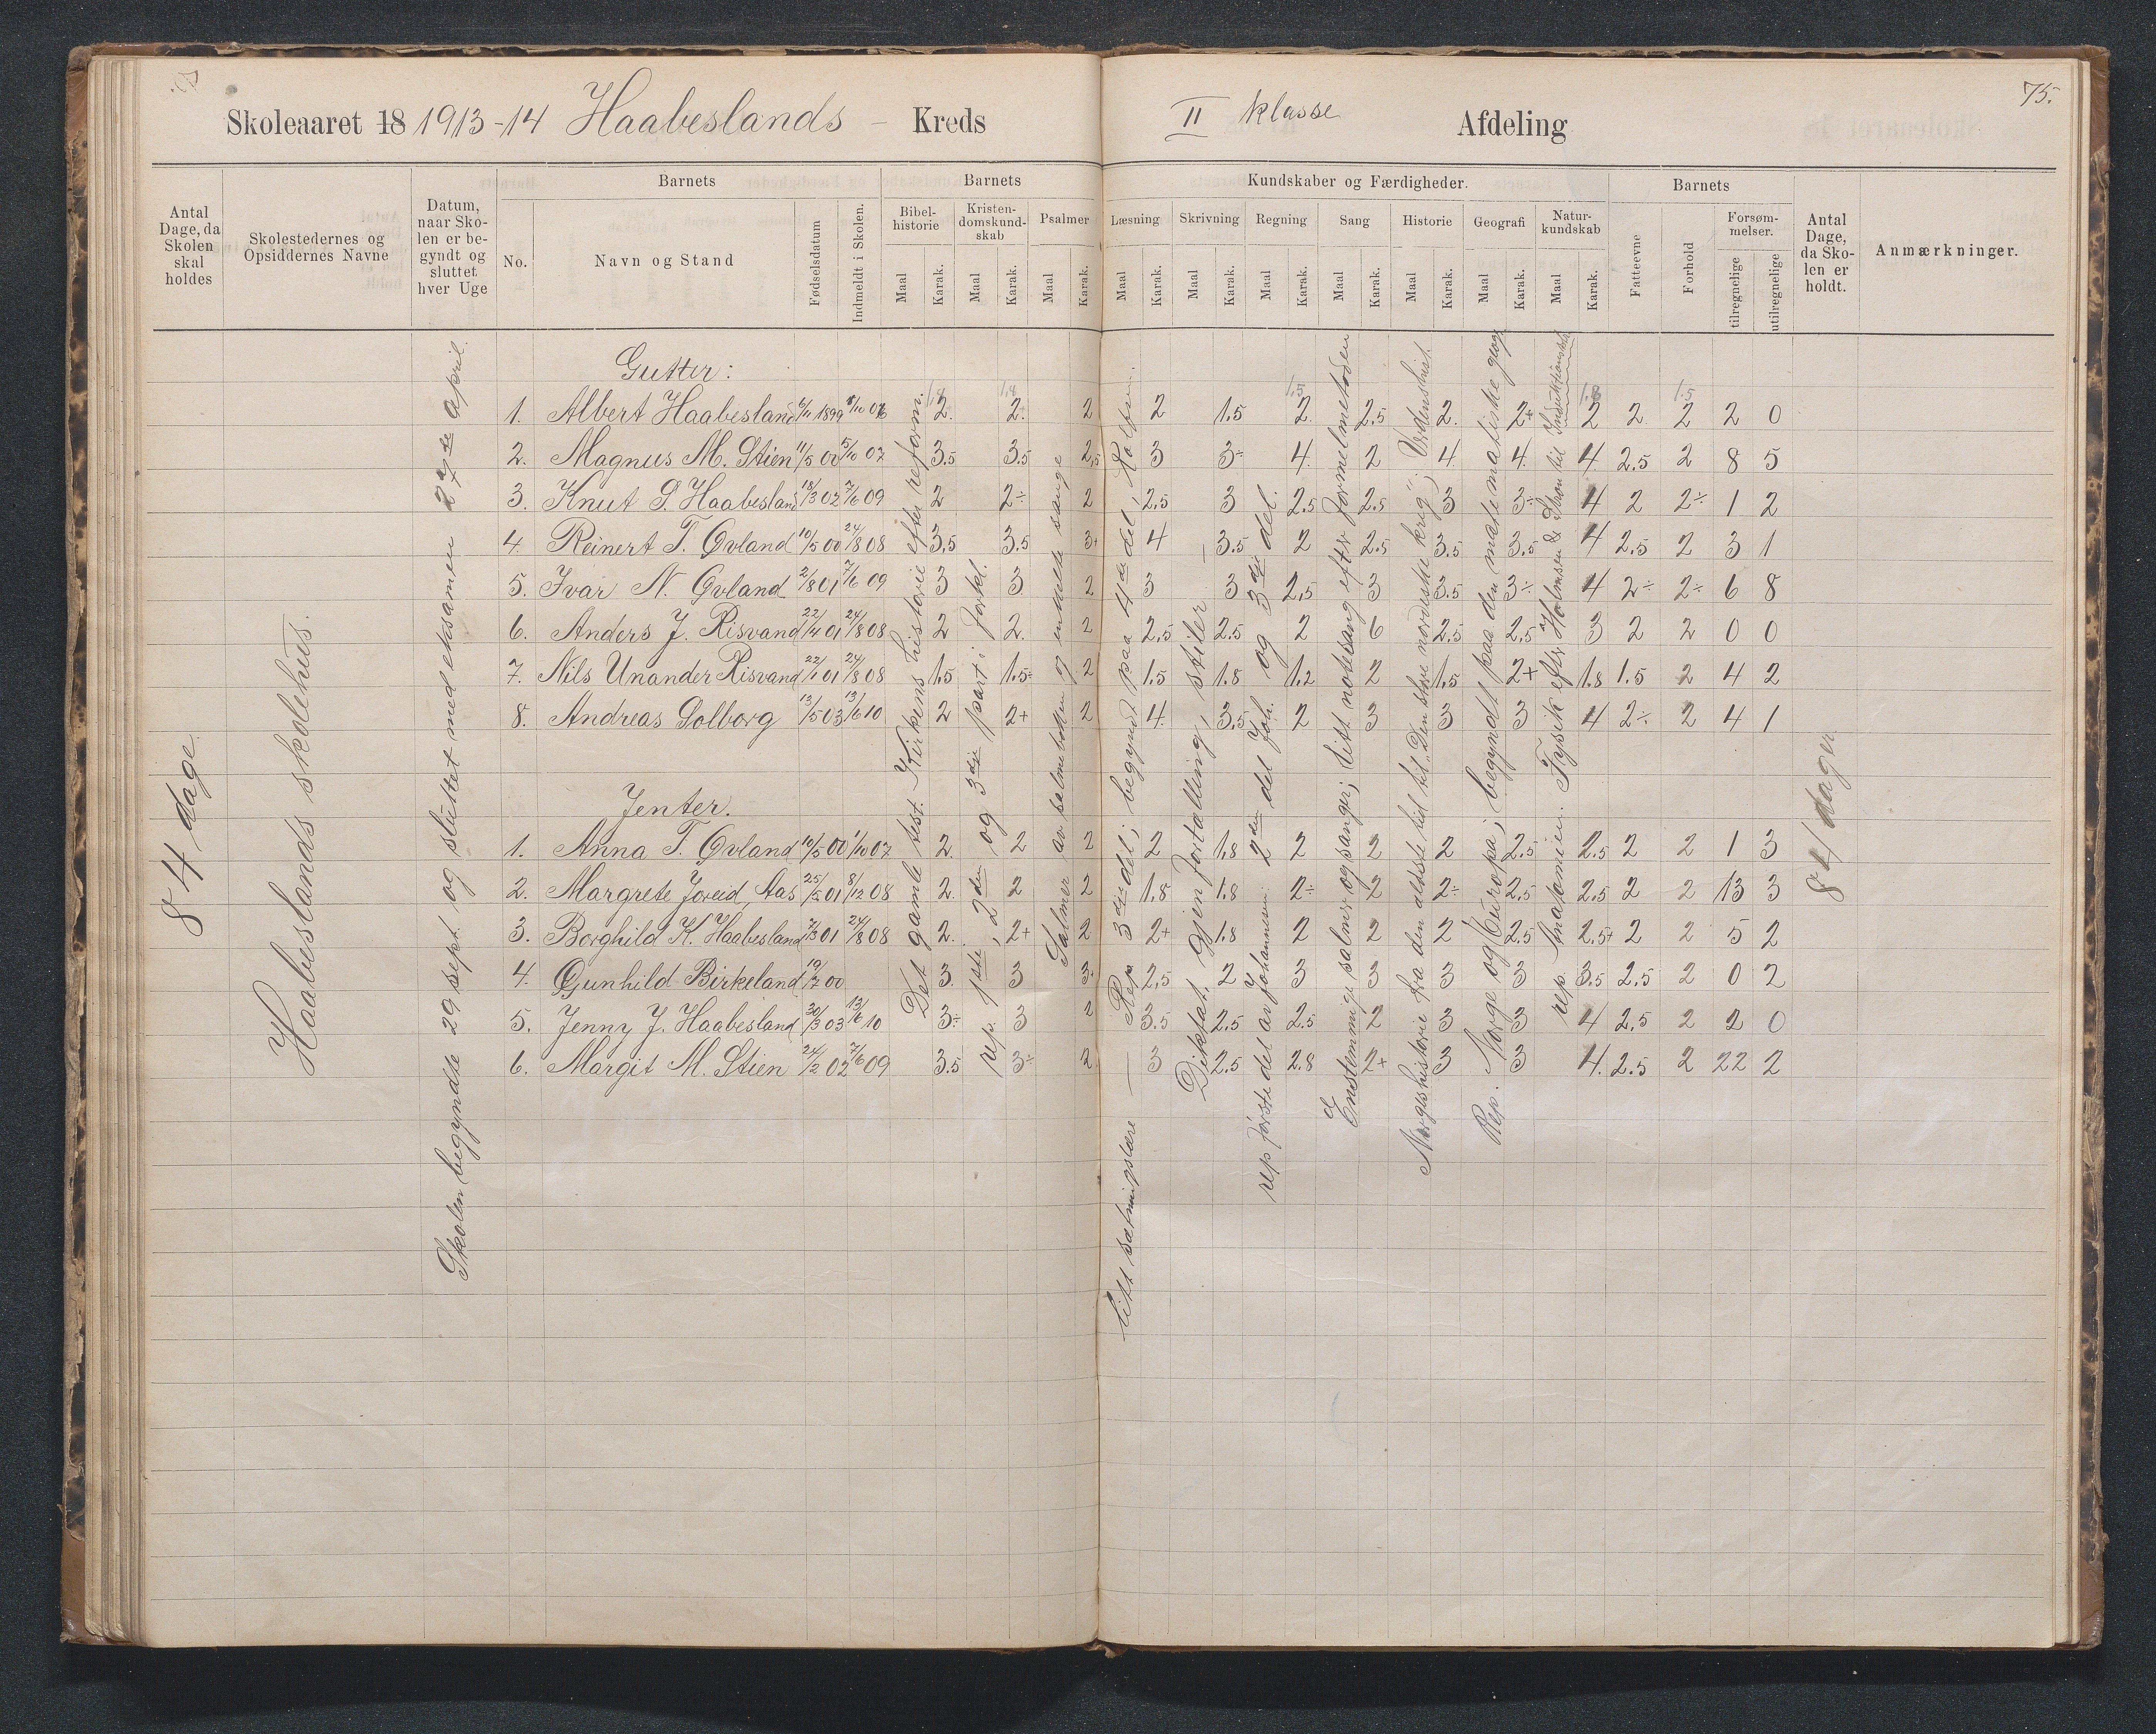 Skoleaaret 18 1913-14 Haabeslands - Kreds
II klasse Afdeling
75.
Antal Dage, da Skolen skal holdes
Skolestedernes og Opsiddernes Navne
Datum, naar Skolen er begyndt og sluttet hver Uge
Barnets
No.
Navn og Stand
Fødselsdatum
Indmeldt i Skolen.
Barnets
Bibelhistorie
Kristendomskundskab
Psalmer
Kundskaber og Færdigheder.
Læsning Skrivning Regning Sang Historie Geografi Naturkundskab
Maal Karak. Maal Karak. Maal Karak. Maal Karak. Maal Karak. Maal Karak. Maal Karak. Maal Karak. Maal Karak. Maal Karak.
Barnets
Fatteevne
Forhold
Forsømmelser.
tilregnelige
utilregnelige
Antal Dage, da Skolen er holdt.
Anmærkninger.
84 dage.
Haabeslands skolehus.
Skolen begyndte 29 sept. og sluttet med eksamen 27de april.
Gutter:
1. Albert Haabesland 6/11 1899 8/10 06 2. 2. 2 2 1.5 2. 2.5 2. 2+ 2 2 2 2 0
2. Magnus M. Stien 11/5 00 5/10 07 3.5 3.5 2.5 3 3÷ 4. 2 4. 4. 4. 2.5 2 8 5
3. Knut S. Haabesland 18/3 02 7/6 09 2 2÷ 2 2.5 3 2.5 2.5 3 3÷ 4 2 2÷ 1 2
4. Reinert T. Øvland 10/5 00 24/8 08 3.5 3.5 3+ 4 3.5 2 2.5 3.5 3.5 4 2.5 2 3 1
5. Ivar N. Øvland 2/8 01 7/6 09 3 3 2 3 3 2.5 3 3.5 3÷ 4 2÷ 2÷ 6 8
6. Anders J. Risvand 22/4 01 24/8 08 2 2. 2 2.5 2.5 2 6 2.5 2.5 3 2 2 0 0
7. Nils Unander Risvand 22/1 01 24/8 08 1.5 1.5÷ 2 1.5 1.8 1.2 2 1.5 2+ 1.8 1.5 2 4 2
8. Andreas Solborg 13/5 03 13/6 10 2 2+ 2 4. 3.5 2 3 3 3 4 2÷ 2 4 1
Jenter.
1. Anna T. Øvland 10/5 00 1/10 07 2. 2 2 2 1.8 2 2 2 2.5 2.5 2 2 1 3
2. Margrete Joreid, Aas 25/5 01 8/12 08 2. 2 2 1.8 1.8 2÷ 2 2÷ 2.5 2.5 2 2 13 3
3. Borghild K. Haabesland 7/3 01 24/8 08 2. 2+ 2 2+ 1.8 2 2 2 2.5 2.5+ 2 2 5 2
4. Gunhild Birkeland 19/7 00 3. 3 3. 2.5 2 3 3 3 3 3.5 2.5 2 0 2
5. Jenny J. Haabesland 30/3 03 13/6 10 3÷ 3 2 3.5 2.5 2.5 2 3 3 4 2.5 2 2 0
6. Margit M. Stien 24/2 02 7/6 09 3.5 3÷ 2 3 2.5 2.8 2+ 3 3 4. 2.5 2 22 2
Det gamle test. Kirkens historie efter reform.
rep. 1ste, 2den og 3die part i forkl.
Salmer av salmeboken og enkelte sange
Rep 3die del; begyndt paa 4de del,
litt sætningslære
Diktat, gjenfortælling, stiler
rep første del av Johannesen 2den del Joh. og 3die del.
Enstemmige salmer og sanger; litt notesang efter formelmetoden
Norgeshistorie fra den ældste tid til "Den store nordiske krig"; Verdenshist.
Rep. Norge og Europa; begyndt paa den matematiske geogr.
rep. Anatomien. Fysik efter Holmsen
84 dager.